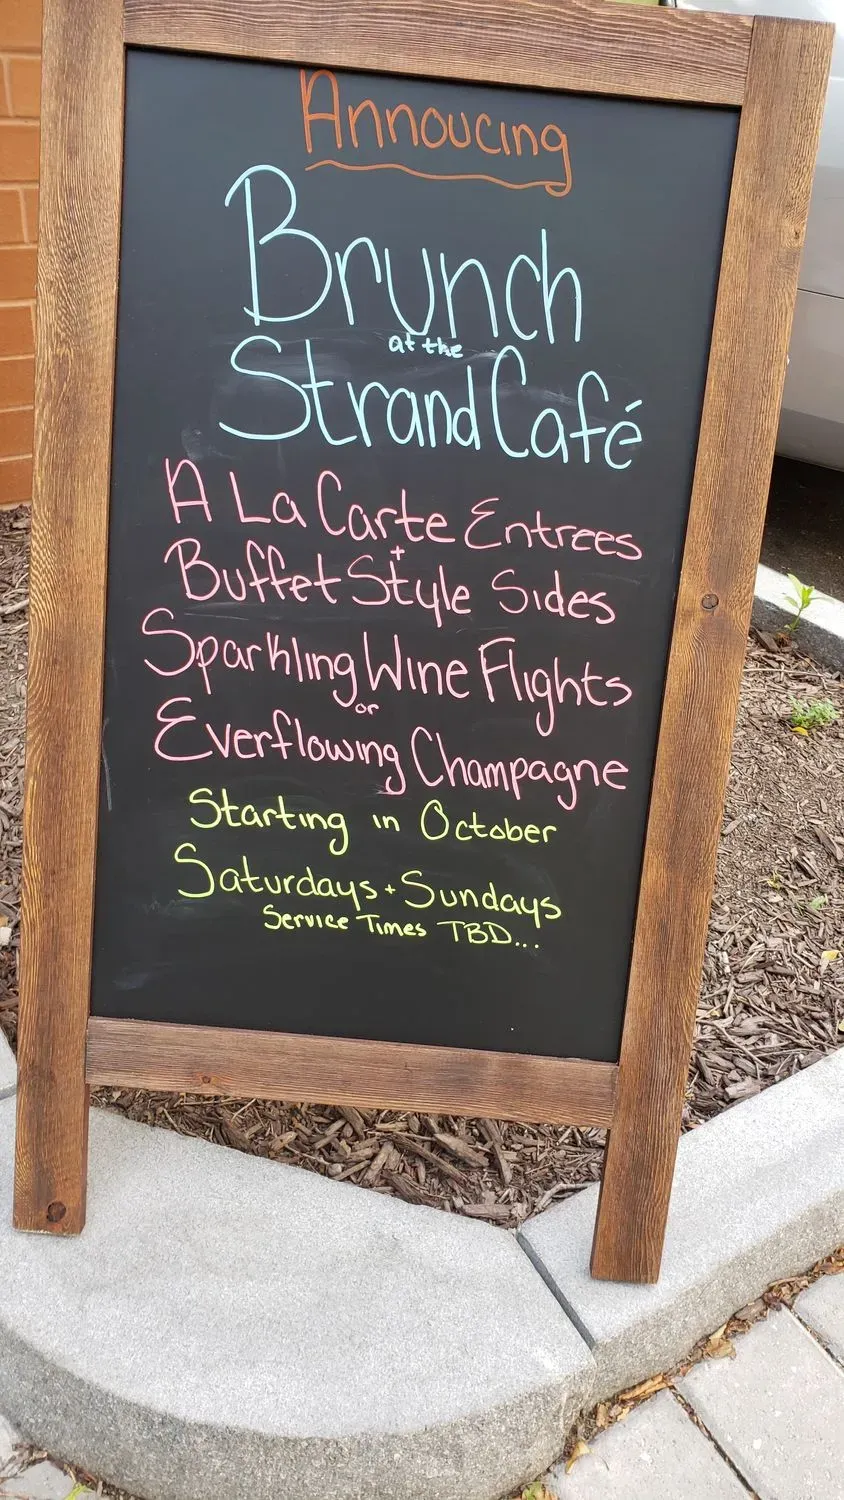 Annoucing
Brunch
at the
Strand Café
A La Carte Entrees
+
Buffet Style Sides
Sparkling Wine Flights
or
Everflowing Champagne
Starting in October
Saturdays + Sundays
Service Times TBD...